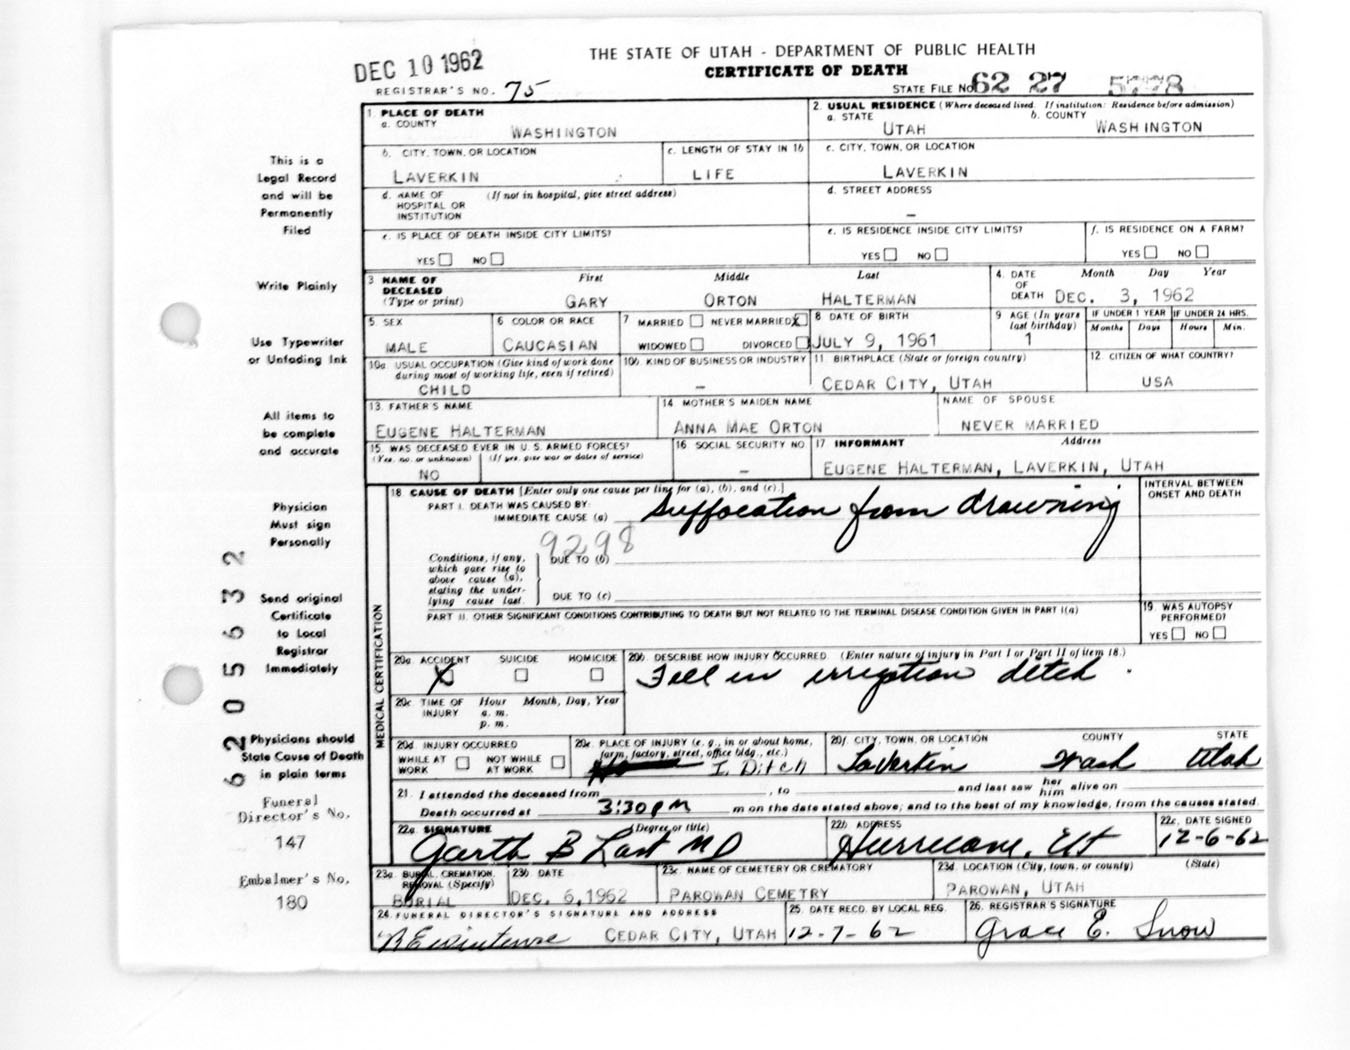 DEC 10 1962
THE STATE OF UTAH - DEPARTMENT OF PUBLIC HEALTH
CERTIFICATE OF DEATH
REGISTRAR'S NO. 75
STATE FILE NO. 62 27 5778
1. PLACE OF DEATH
a. COUNTY
WASHINGTON
2. USUAL RESIDENCE (Where deceased lived. If institution: Residence before admission)
a. STATE b. COUNTY
UTAH WASHINGTON
b. CITY, TOWN, OR LOCATION
LAVERKIN
c. LENGTH OF STAY IN 1b
LIFE
c. CITY, TOWN, OR LOCATION
LAVERKIN
d. NAME OF (If not in hospital, give street address)
HOSPITAL OR
INSTITUTION
d. STREET ADDRESS
–
e. IS PLACE OF DEATH INSIDE CITY LIMITS?
YES NO
e. IS RESIDENCE INSIDE CITY LIMITS?
YES NO
f. IS RESIDENCE ON A FARM?
YES NO
3 NAME OF First Middle Last
DECEASED
(Type or print) GARY ORTON HALTERMAN
4. DATE Month Day Year
OF
DEATH DEC. 3, 1962
5 SEX
MALE
6 COLOR OR RACE
CAUCASIAN
7 MARRIED NEVER MARRIED X
WIDOWED DIVORCED
8 DATE OF BIRTH
JULY 9, 1961
9 AGE (In years
last birthday)
1
IF UNDER 1 YEAR
Months Days
IF UNDER 24 HRS.
Hours Min.
10a. USUAL OCCUPATION (Give kind of work done
during most of working life, even if retired)
CHILD
10b. KIND OF BUSINESS OR INDUSTRY
–
11 BIRTHPLACE (State or foreign country)
CEDAR CITY, UTAH
12. CITIZEN OF WHAT COUNTRY?
USA
13. FATHER'S NAME
EUGENE HALTERMAN
14 MOTHER'S MAIDEN NAME
ANNA MAE ORTON
NAME OF SPOUSE
NEVER MARRIED
15. WAS DECEASED EVER IN U. S. ARMED FORCES?
(Yes, no, or unknown) (If yes, give war or dates of service)
NO
16 SOCIAL SECURITY NO.
–
17 INFORMANT Address
EUGENE HALTERMAN, LAVERKIN, UTAH
18 CAUSE OF DEATH [Enter only one cause per line for (a), (b), and (c).]
INTERVAL BETWEEN
ONSET AND DEATH
PART I. DEATH WAS CAUSED BY:
IMMEDIATE CAUSE (a) Suffocation from drowning
9298
Conditions, if any,
which gave rise to
above cause (a),
stating the under-
lying cause last.
DUE TO (b)
DUE TO (c)
PART II. OTHER SIGNIFICANT CONDITIONS CONTRIBUTING TO DEATH BUT NOT RELATED TO THE TERMINAL DISEASE CONDITION GIVEN IN PART I(a)
19. WAS AUTOPSY
PERFORMED?
YES NO
MEDICAL CERTIFICATION
20a. ACCIDENT SUICIDE HOMICIDE
X
20b. DESCRIBE HOW INJURY OCCURRED. (Enter nature of injury in Part I or Part II of item 18.)
Fell in irrigation ditch.
20c. TIME OF Hour Month, Day, Year
INJURY a. m.
p. m.
20d. INJURY OCCURRED
WHILE AT WORK NOT WHILE AT WORK
20e. PLACE OF INJURY (e. g., in or about home,
farm, factory, street, office bldg., etc.)
I. Ditch
20f. CITY, TOWN, OR LOCATION COUNTY STATE
LaVerkin Wash Utah
21. I attended the deceased from , to and last saw her him alive on
Death occurred at 3:30 pm m on the date stated above; and to the best of my knowledge, from the causes stated.
22a. SIGNATURE (Degree or title)
Garth B Last MD
22b ADDRESS
Hurricane, Ut
22c. DATE SIGNED
12-6-62
23a. BURIAL, CREMATION,
REMOVAL (Specify)
BURIAL
23b DATE
DEC. 6, 1962
23c. NAME OF CEMETERY OR CREMATORY
PAROWAN CEMETRY
23d LOCATION (City, town, or county) (State)
PAROWAN, UTAH
24. FUNERAL DIRECTOR'S SIGNATURE AND ADDRESS
CEDAR CITY, UTAH
25. DATE RECD. BY LOCAL REG.
12-7-62
26. REGISTRAR'S SIGNATURE
Grace E. Snow
This is a
Legal Record
and will be
Permanently
Filed
Write Plainly
Use Typewriter
or Unfading Ink
All items to
be complete
and accurate
Physician
Must sign
Personally
Send original
Certificate
to Local
Registrar
Immediately
Physicians should
State Cause of Death
in plain terms
Funeral
Director's No.
147
Embalmer's No.
180
62055632